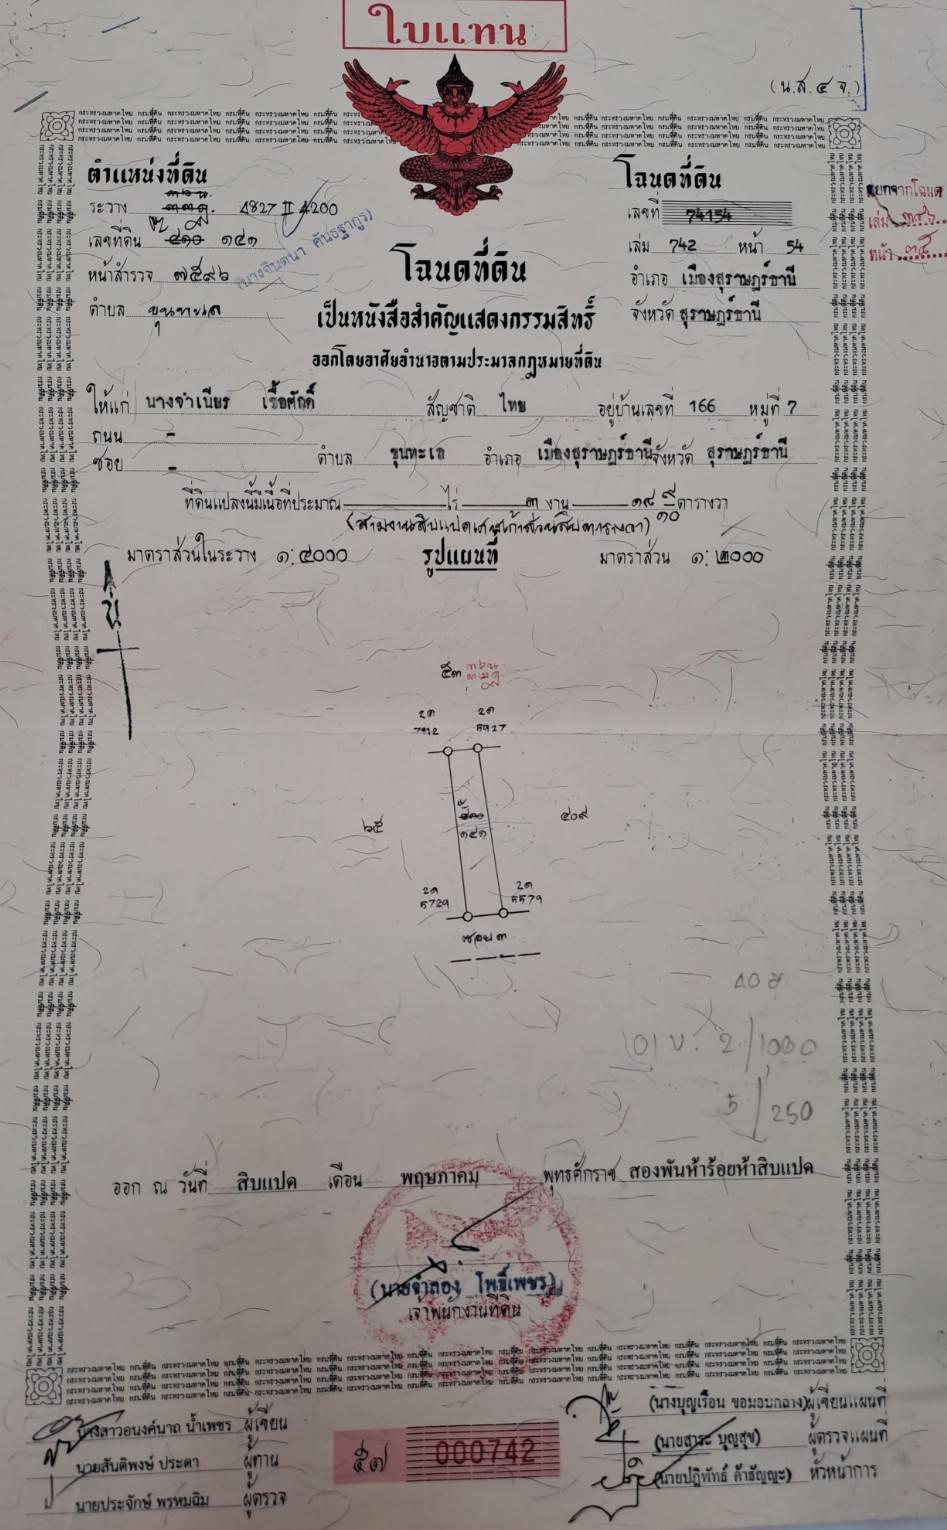 ใบแทน
(น.ส. ๔ จ.)
ตำแหน่งที่ดิน
ระวาง 4827 II 4200
เลขที่ดิน ๔๑๐ ๑๔๑
หน้าสำรวจ ๗๕๙๖
ตำบล ขุนทะเล
โฉนดที่ดิน
เลขที่ 74154
เล่ม 742 หน้า 54
อำเภอ เมืองสุราษฎร์ธานี
จังหวัด สุราษฎร์ธานี
แยกจากโฉนด
เล่ม
หน้า
โฉนดที่ดิน
เป็นหนังสือสำคัญแสดงกรรมสิทธิ์
ออกโดยอาศัยอำนาจตามประมวลกฎหมายที่ดิน
ให้แก่ นางจำเนียร เชื้อศักดิ์ สัญชาติ ไทย อยู่บ้านเลขที่ 166 หมู่ที่ 7
ถนน -
ซอย - ตำบล ขุนทะเล อำเภอ เมืองสุราษฎร์ธานี จังหวัด สุราษฎร์ธานี
ที่ดินแปลงนี้มีเนื้อที่ประมาณ ไร่ ๓ งาน ๑๘ ๙/๑๐ ตารางวา
(สามงานสิบแปดเศษเก้าส่วนสิบตารางวา)
มาตราส่วนในระวาง ๑:๔๐๐๐ รูปแผนที่ มาตราส่วน ๑:๒๐๐๐
๕๓
7912 5927
๖๕ ๑๔๑ ๔๐๙
5729 5579
ซอย ๓
2/1000
5/250
ออก ณ วันที่ สิบแปด เดือน พฤษภาคม พุทธศักราช สองพันห้าร้อยห้าสิบแปด
(นายจำลอง โพธิ์เพชร)
เจ้าพนักงานที่ดิน
นางสาวอนงค์นาถ น้ำเพชร ผู้เขียน
นายสันติพงษ์ ประดา ผู้ทาน
นายประจักษ์ พรหมฉิม ผู้ตรวจ
๕๗ 000742
(นางบุญเรือน ขอมอบกลาง) ผู้เขียนแผนที่
(นายสาระ บุญสุข) ผู้ตรวจแผนที่
(นายปฏิพัทธ์ ค้าธัญญะ) หัวหน้าการ